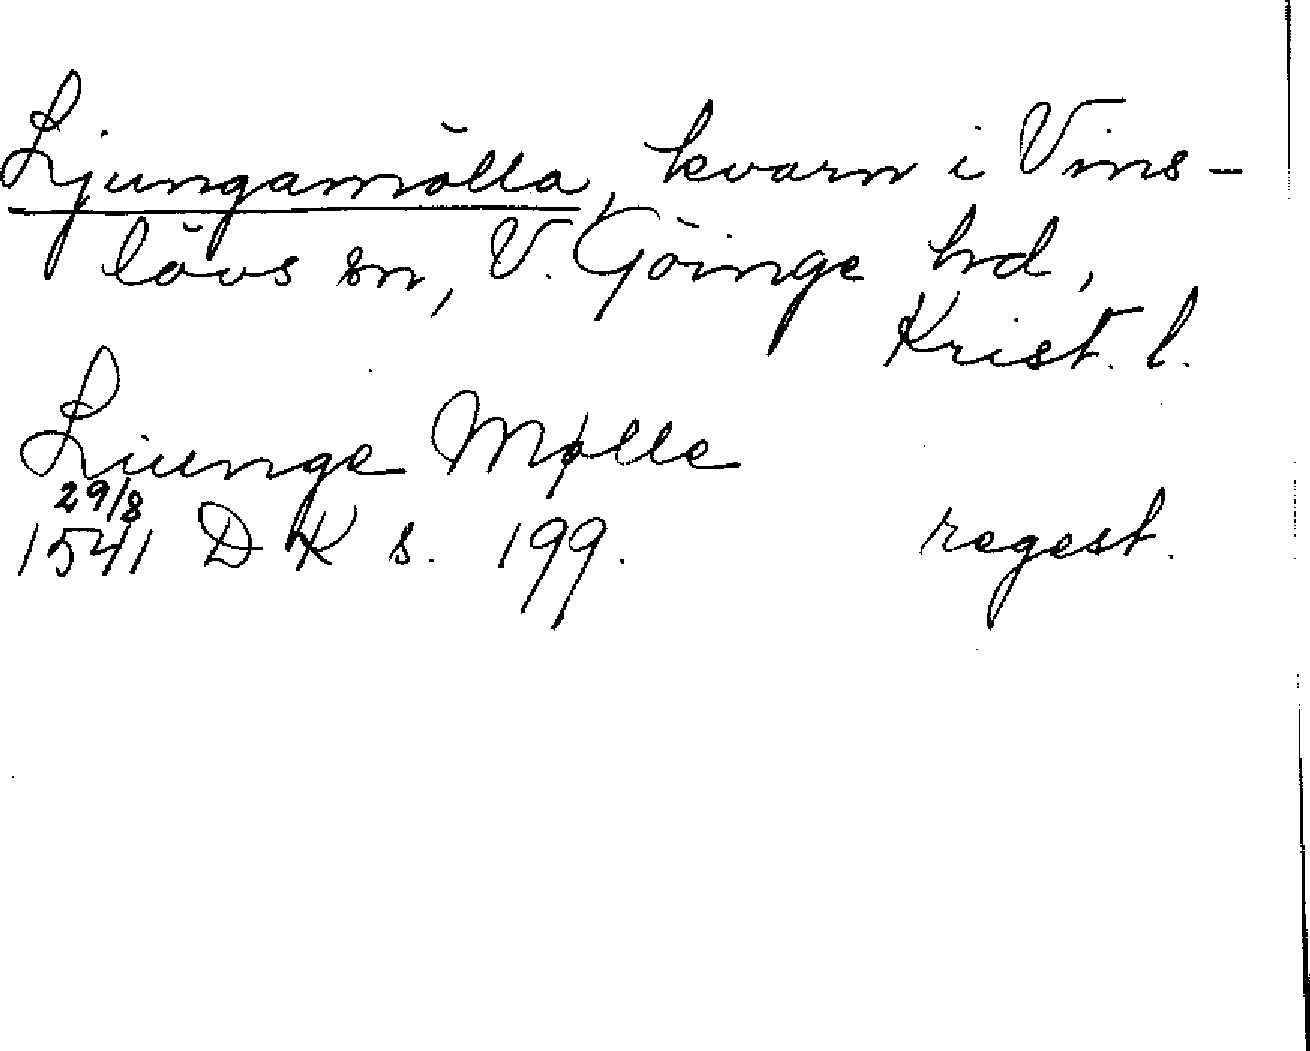 Ljungamölla, kvarn i Vins-
lövs sn, V. Göinge hd,
Krist. l.
Liunge Mølle
29/8
1541 DK s. 199. regest.